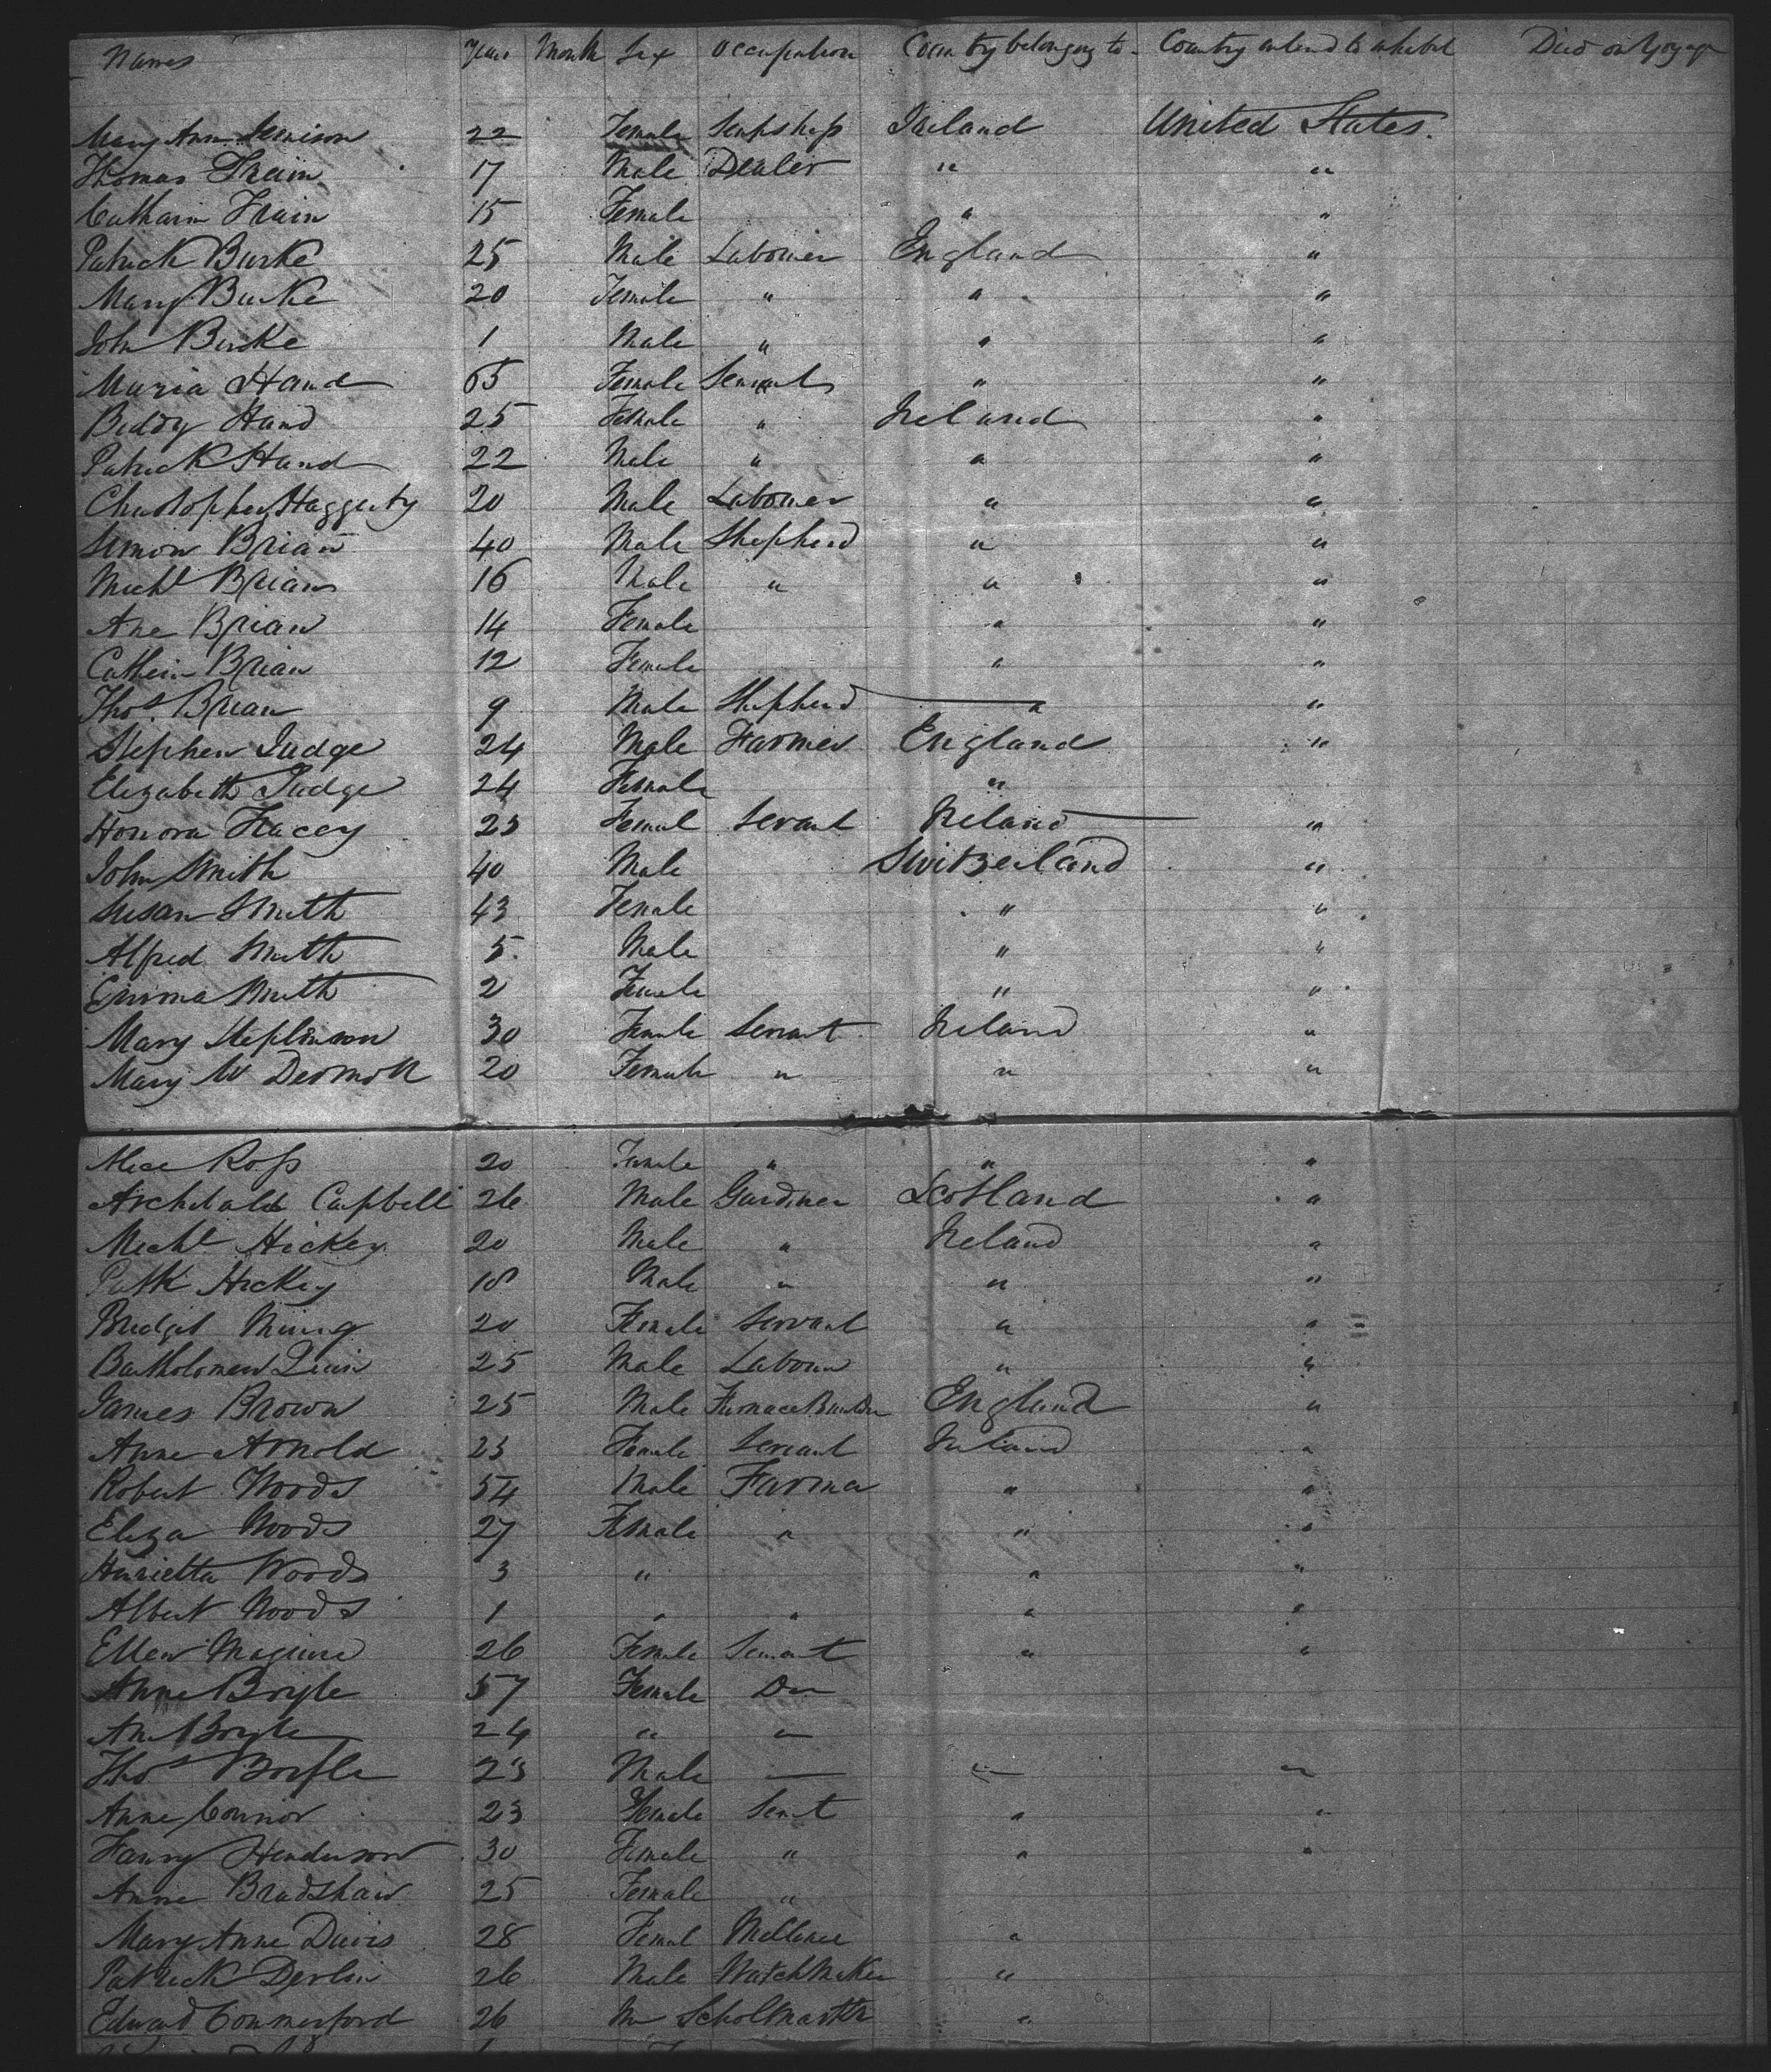 Names Years Month Sex Occupation Country belonging to Country intend to inhabit Died on Voyage
Mary Ann 22 Female Ireland United States.
Thomas 17 Male Dealer " "
Catharin Frain 15 Female " "
Patrick Burke 25 Male Labourer England "
Mary Burke 20 Female " " "
John Burke 1 Male " " "
Maria Hand 65 Female Servant " "
Biddy Hand 25 Female " Ireland "
Patrick Hand 22 Male " " "
Christopher Haggerty 20 Male Labourer " "
Simon Brian 40 Male Shepherd " "
Michl Brian 16 Male " " "
Ane Brian 14 Female " "
Cathein Brian 12 Female " "
Thos. Brian 9 Male Shepherd " "
Stephen Judge 24 Male Farmer England "
Elizabeth Judge 24 Female "
Honora 23 Femal Servant Ireland "
John Smith 40 Male Switzerland "
Susan Smith 43 Female " "
Alfred Smith 5 Male " "
Emma Smith 2 Female " "
Mary 30 Female Servant Ireland "
Mary Mc Dermott 20 Female " " "
Alice Ross 20 Female " " "
Archibald Campbell 26 Male Gardner Scotland "
Michl Hickey 20 Male " Ireland "
Patk Hickey 18 Male " " "
Bridget 20 Female Servant " "
Bartholomew Quin 25 Male Labour " "
James Brown 25 Male Furnace Builder England "
Anne Arnold 23 Female Servant Ireland "
Robert Woods 54 Male Farmer " "
Eliza Woods 27 Female " " "
Henrietta Woods 3 " " "
Albert Woods 1 " " " "
Ellen Maguire 26 Female Servant " "
Anne Boyle 57 Female Do
An Boyle 24 " "
Thos Boyle 23 Male — " "
Anne Connor 23 Female Servt " "
Fanny Henderson 30 Female " " "
Anne Bradshaw 25 Female "
Mary Anne Davis 28 Femal Milliner "
Patrick Devlin 26 Male Watch Maker "
Edward Commerford 26 M Scholmaster "